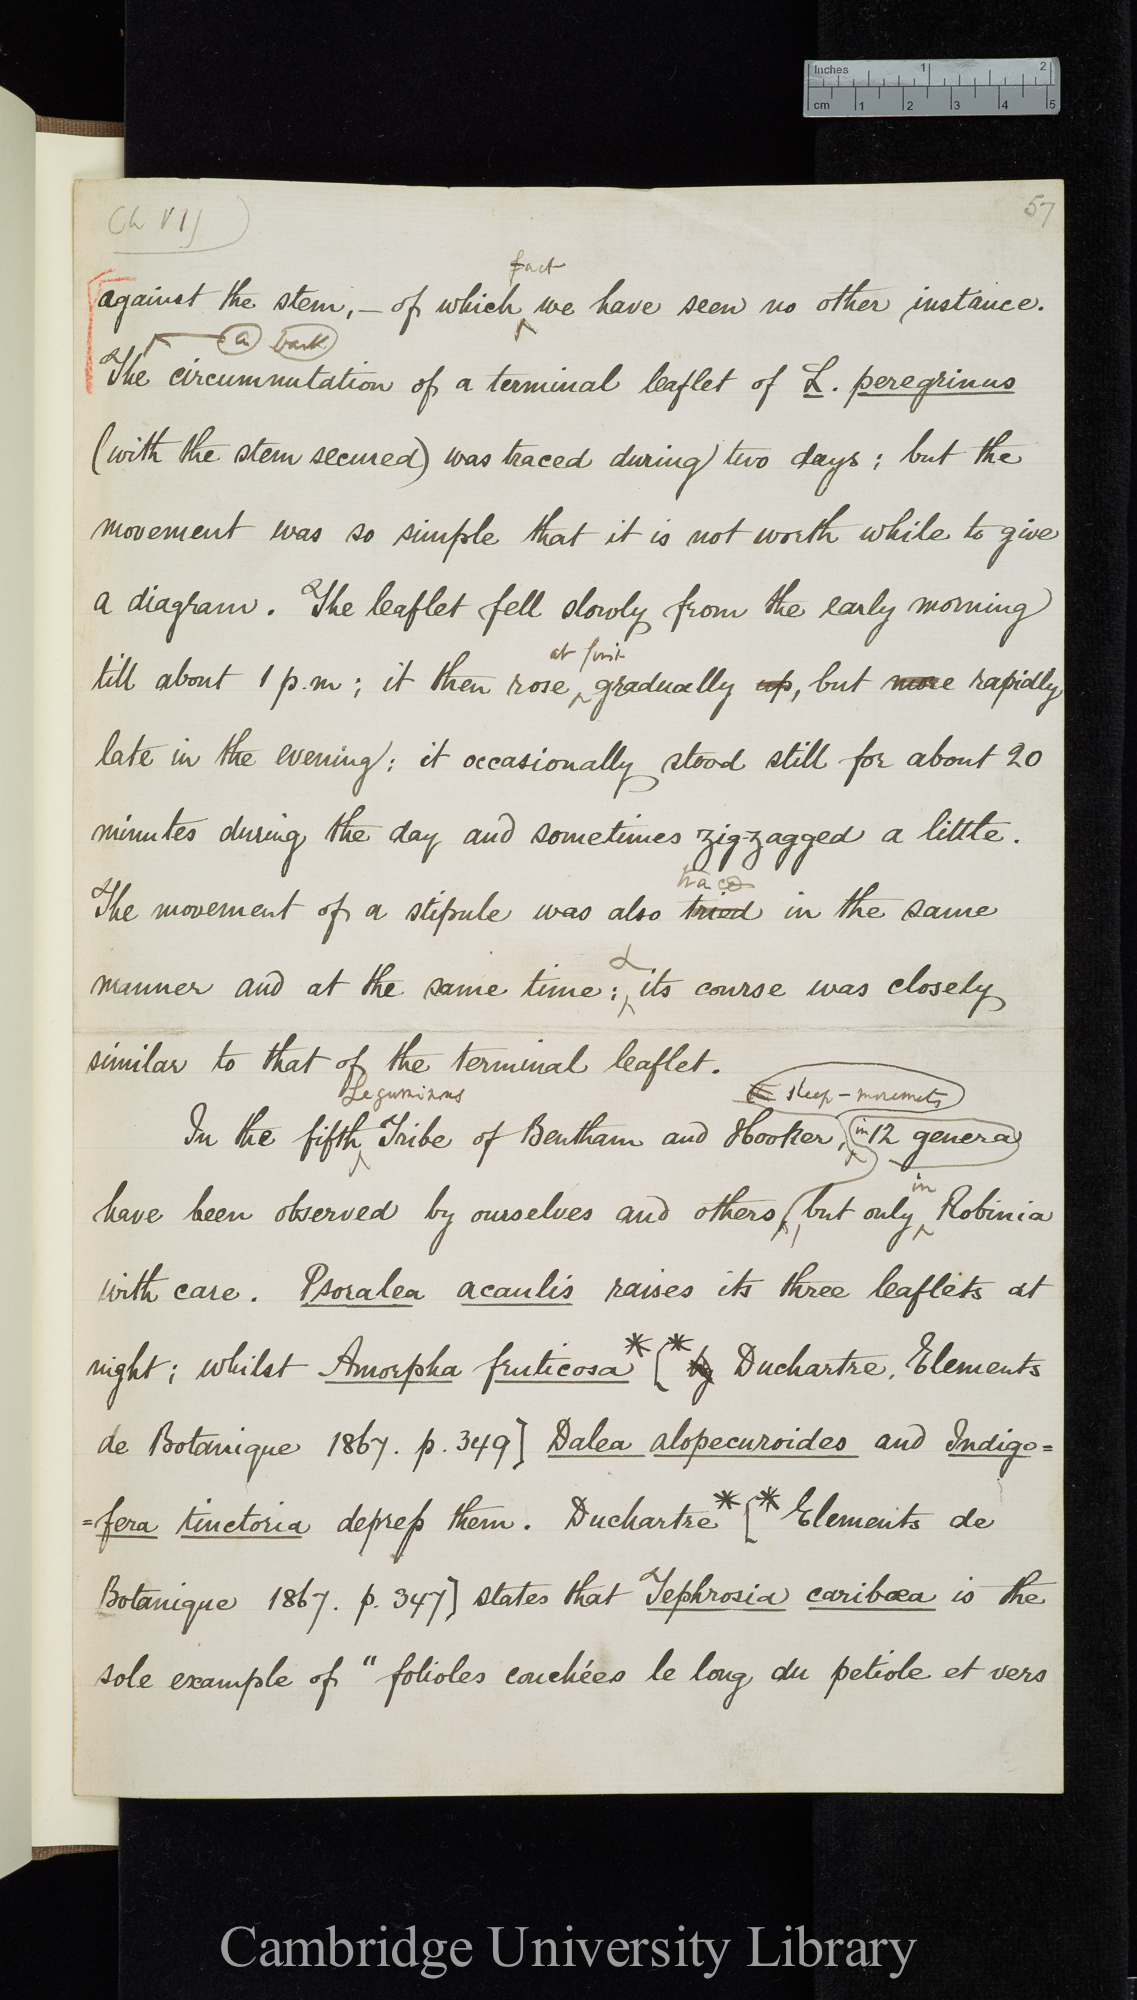 Inches 1 2
cm 1 2 3 4 5
57
Ch VI)
fact
against the stem, — of which we have seen no other instance.
(a) back
The circumnutation of a terminal leaflet of L. peregrinus
(with the stem secured) was traced during two days; but the
movement was so simple that it is not worth while to give
a diagram. The leaflet fell slowly from the early morning
at first
till about 1 p.m; it then rose gradually up, but more rapidly
late in the evening; it occasionally stood still for about 20
minutes during the day and sometimes zig-zagged a little.
traced
The movement of a stipule was also tried in the same
&
manner and at the same time; its course was closely
similar to that of the terminal leaflet.
Leguminous sleep-movements
In the fifth Tribe of Bentham and Hooker, in 12 genera
in
have been observed by ourselves and others, but only Robinia
with care. Psoralea acaulis raises its three leaflets at
night; whilst Amorpha fruticosa* [* by Duchartre, Elements
de Botanique 1867. p. 349] Dalea alopecuroides and Indigo=
=fera tinctoria depress them. Duchartre* [* Elements de
Botanique 1867. p. 347] states that Tephrosia caribæa is the
sole example of "folioles couchées le long du petiole et vers
Cambridge University Library